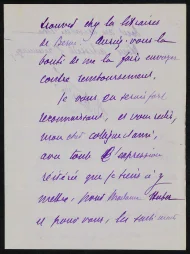 trouver chez les libraires
de Rome. Auriez-vous la
bonté de me la faire envoyer
contre remboursement.
Je vous en serais fort
reconnaissant, et vous
mon cher collègue et ami,
avec toute l'expression
réitérée que je tiens à y
mettre, pour Madame
et pour vous, les